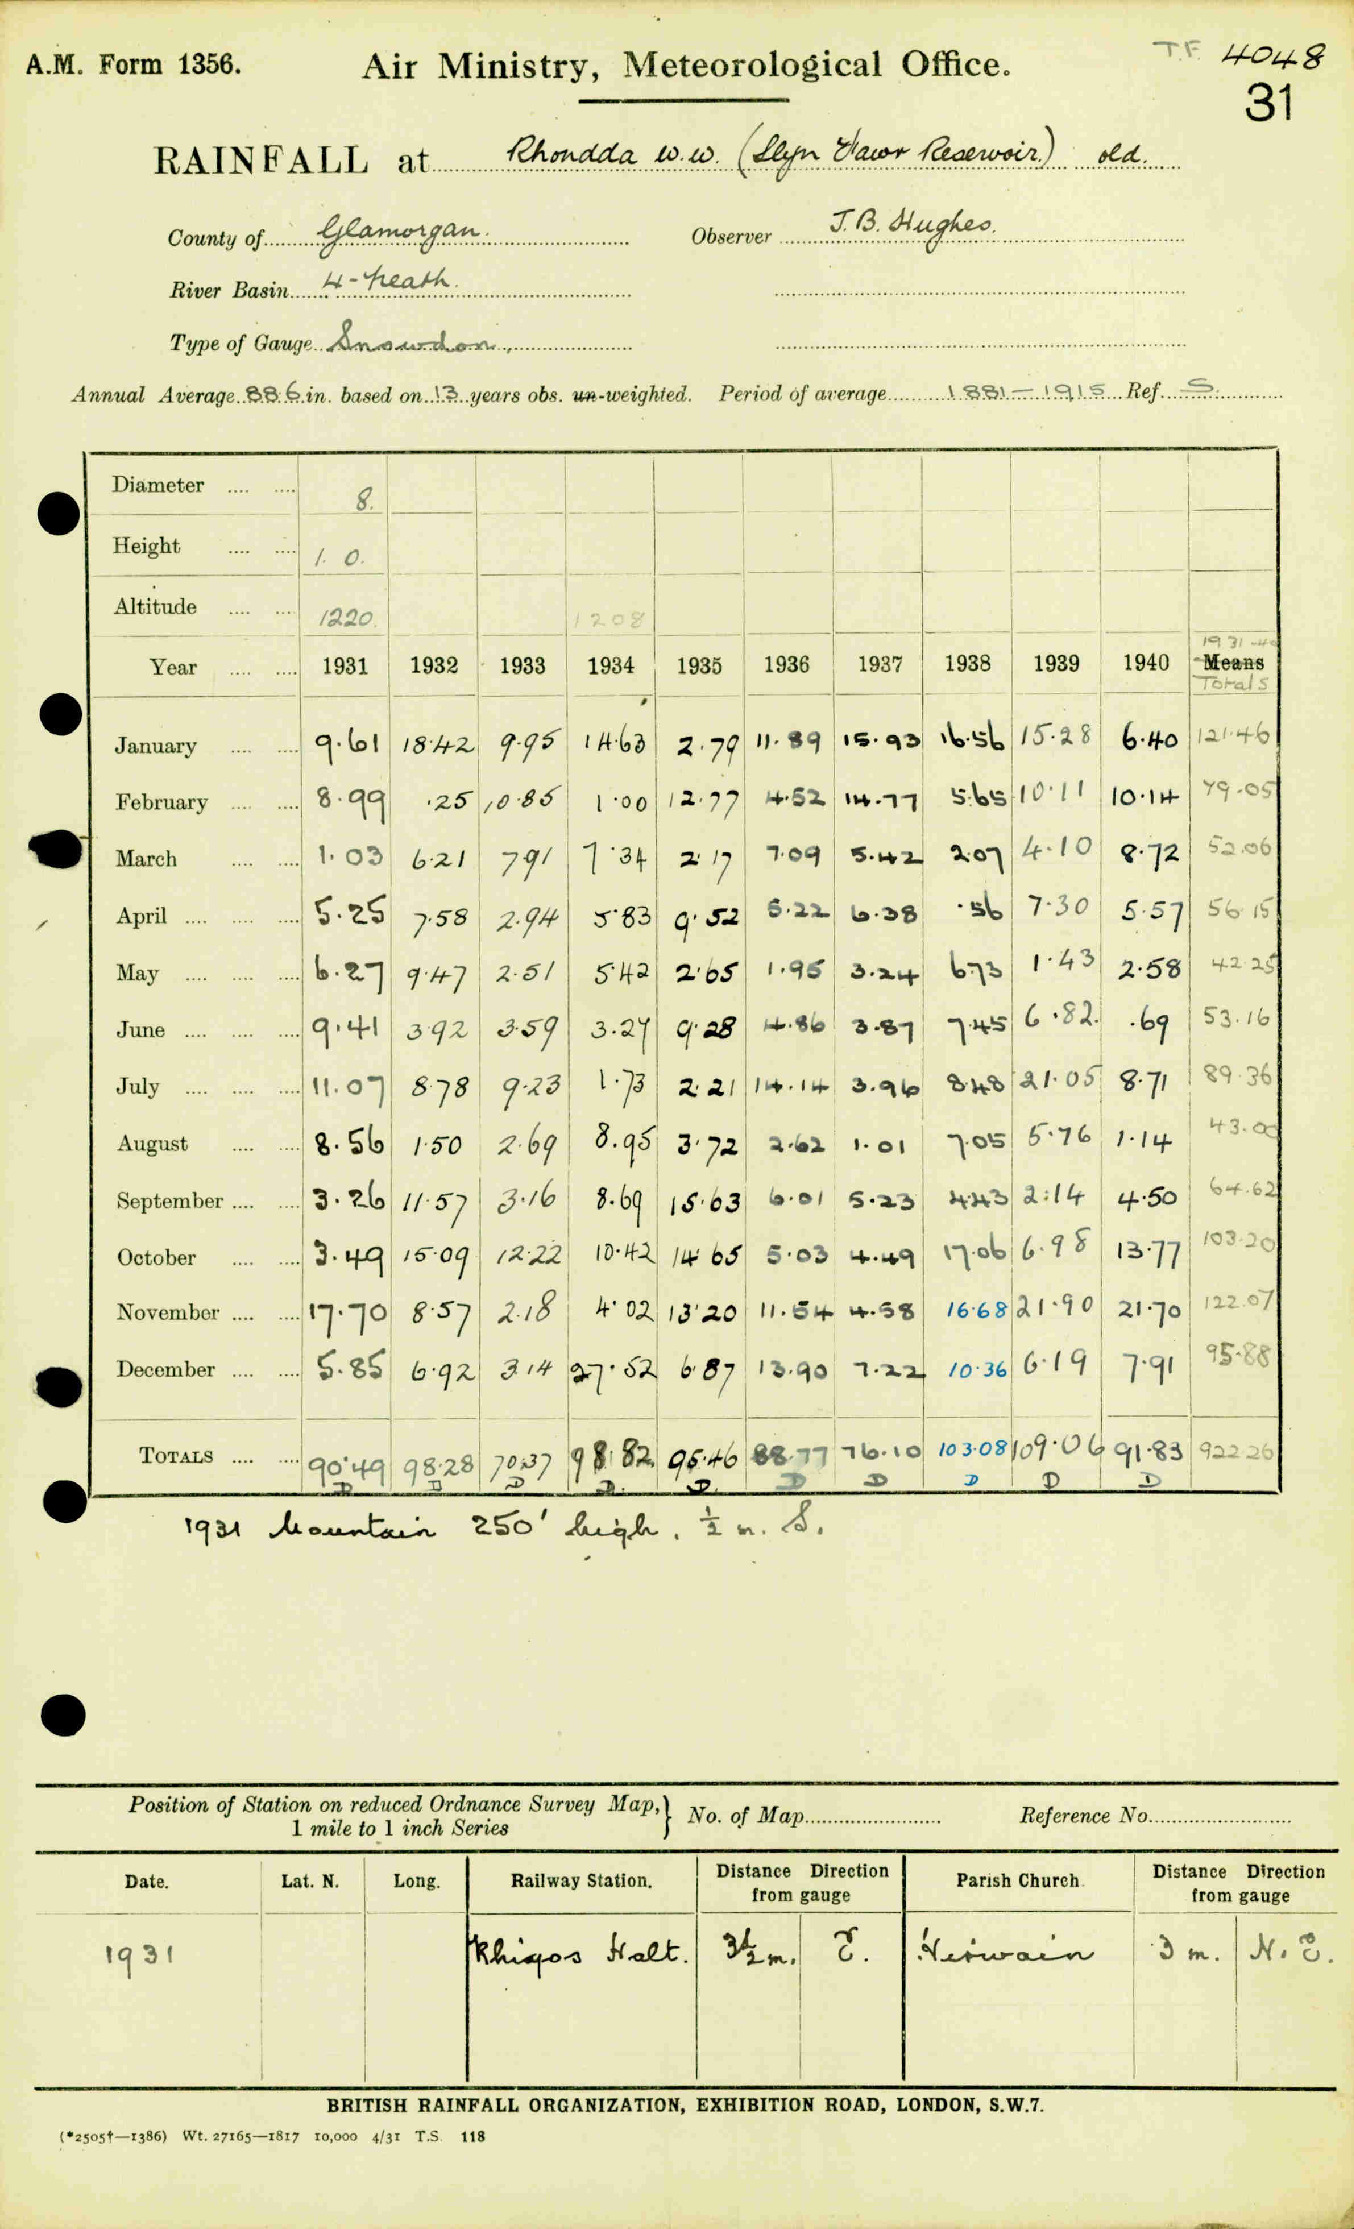 A.M. Form 1356.
Air Ministry, Meteorological Office.
T.F. 4048
31
RAINFALL at Rhondda W.W. (Llyn Fawr Reservoir.) old.
County of Glamorgan. Observer J.B. Hughes.
River Basin 4-Neath.
Type of Gauge Snowdon.
Annual Average 88.6 in. based on 13 years obs. un-weighted. Period of average 1881-1915 Ref. S.
Diameter .... .... 8.
Height .... .... 1. 0.
Altitude .... .... 1220. 1208
Year .... .... 1931 1932 1933 1934 1935 1936 1937 1938 1939 1940 1931-40 Means Totals
January .... .... 9.61 18.42 9.95 14.63 2.79 11.89 15.93 16.56 15.28 6.40 121.46
February .... .... 8.99 .25 10.85 1.00 12.77 4.52 14.77 5.65 10.11 10.14 79.05
March .... .... 1.03 6.21 7.91 7.34 2.17 7.09 5.42 2.07 4.10 8.72 52.06
April .... .... .... 5.25 7.58 2.94 5.83 9.52 5.22 6.38 .56 7.30 5.57 56.15
May .... .... .... 6.27 9.47 2.51 5.42 2.65 1.95 3.24 6.73 1.43 2.58 42.25
June .... .... .... 9.41 3.92 3.59 3.27 9.28 4.86 3.87 7.45 6.82. .69 53.16
July .... .... .... 11.07 8.78 9.23 1.73 2.21 14.14 3.96 8.48 21.05 8.71 89.36
August .... .... 8.56 1.50 2.69 8.95 3.72 2.62 1.01 7.05 5.76 1.14 43.00
September .... .... 3.26 11.57 3.16 8.69 15.63 6.01 5.23 4.43 2.14 4.50 64.62
October .... .... 3.49 15.09 12.22 10.42 14.65 5.03 4.49 17.06 6.98 13.77 103.20
November .... .... 17.70 8.57 2.18 4.02 13.20 11.54 4.58 16.68 21.90 21.70 122.07
December .... .... 5.85 6.92 3.14 27.52 6.87 13.90 7.22 10.36 6.19 7.91 95.88
TOTALS .... .... 90.49 98.28 70.37 98.82 95.46 88.77 76.10 103.08 109.06 91.83 922.26
D D D D. D. D D D D D
1931 Mountain 250' high, ½ m. S.
Position of Station on reduced Ordnance Survey Map, } No. of Map Reference No.
1 mile to 1 inch Series
Date. Lat. N. Long. Railway Station. Distance Direction from gauge Parish Church. Distance Direction from gauge
1931 Rhigos Halt. 3½ m. E. Hirwain 3 m. N. E.
BRITISH RAINFALL ORGANIZATION, EXHIBITION ROAD, LONDON, S.W.7.
(*2505†—1386) Wt. 27165—1817 10,000 4/31 T.S. 118